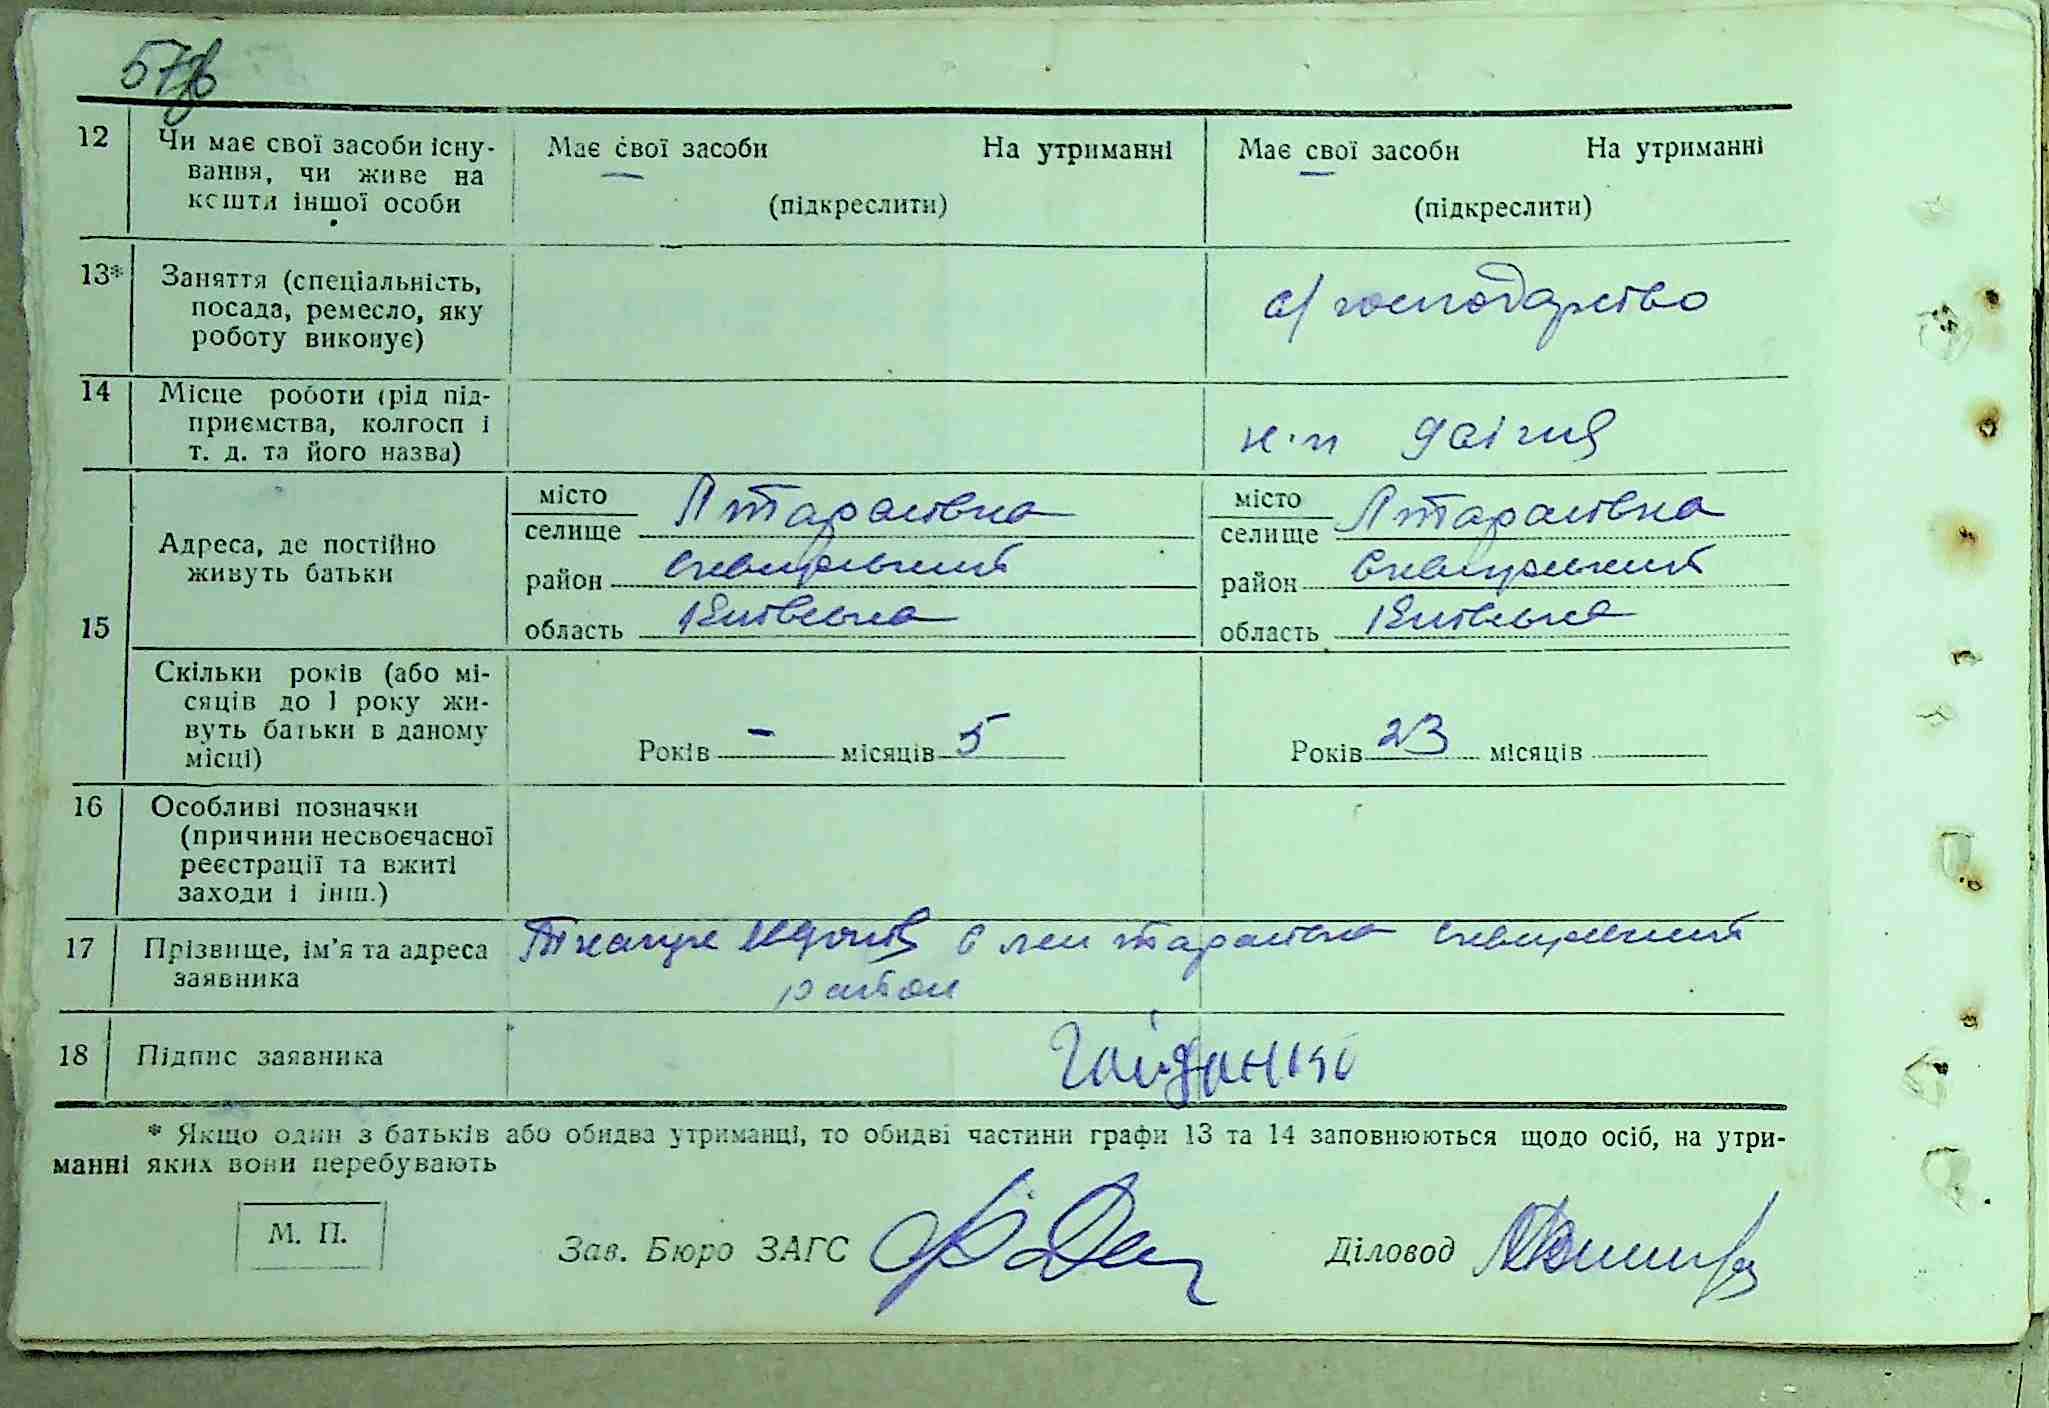 57
12 Чи має свої засоби існу-
вання, чи живе на
кошти іншої особи
Має свої засоби На утриманні
(підкреслити)
Має свої засоби На утриманні
(підкреслити)
13* Заняття (спеціальність,
посада, ремесло, яку
роботу виконує)
с/господарство
14 Місце роботи (рід під-
приємства, колгосп і
т. д. та його назва)
15 Адреса, де постійно
живуть батьки
місто
селище
район Сквирський
область Київська
місто
селище
район Сквирський
область Київська
Скільки років (або мі-
сяців до 1 року жи-
вуть батьки в даному
місці)
Років - місяців 5
Років 23 місяців
16 Особливі позначки
(причини несвоєчасної
реєстрації та вжиті
заходи і інш.)
17 Прізвище, ім'я та адреса
заявника
Сквирський
район
18 Підпис заявника
* Якщо один з батьків або обидва утриманці, то обидві частини графи 13 та 14 заповнюються щодо осіб, на утри-
манні яких вони перебувають
М. П.
Зав. Бюро ЗАГС
Діловод